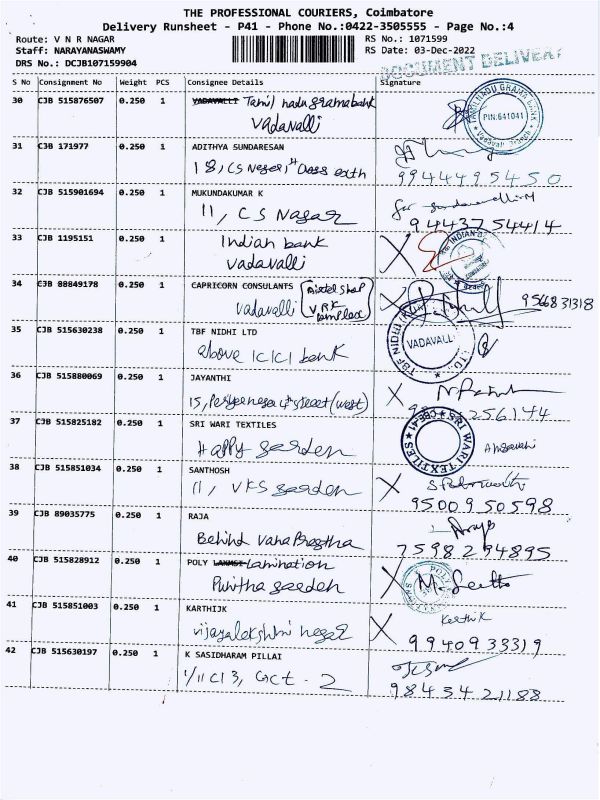 THE PROFESSIONAL COURIERS, Coimbatore
Delivery Runsheet - P41 - Phone No.:0422-3505555 - Page No.:4
Route: V N R NAGAR RS No.: 1071599
Staff: NARAYANASWAMY RS Date: 03-Dec-2022
DRS No.: DCJB107159904 DOCUMENT DELIVERY
S No Consignment No Weight PCS Consignee Details Signature
30 CJB 515876507 0.250 1 VADAVALLI Tamil nadu grama bank
Vadavalli
TAMILNADU GRAMA BANK PIN:641041
31 CJB 171977 0.250 1 ADITHYA SUNDARESAN
18, CS Nagar,
9944495450
32 CJB 515901694 0.250 1 MUKUNDAKUMAR K
11, C S Nagar
9443754414
33 CJB 1195151 0.250 1 Indian bank
Vadavalli
34 CJB 88849178 0.250 1 CAPRICORN CONSULANTS Airtel Shop
Vadavalli VRK Complex
9566831318
35 CJB 515630238 0.250 1 TBF NIDHI LTD
above ICICI bank
VADAVALLI
36 CJB 515880069 0.250 1 JAYANTHI
15, street (west)
256144
37 CJB 515825182 0.250 1 SRI WARI TEXTILES
Happy garden
SRI WARI TEXTILES CBE-41
38 CJB 515851034 0.250 1 SANTHOSH
11, VKS garden
9500950598
39 CJB 89035775 0.250 1 RAJA
Behind Vanaprastha
7598294895
40 CJB 515828912 0.250 1 POLY LAXMSI Lamination
Punitha garden
M. Geetha
41 CJB 515851003 0.250 1 KARTHIJK
vijayalakshmi nagar
Karthik
9940933319
42 CJB 515630197 0.250 1 K SASIDHARAM PILLAI
1/11 C13, GCT - 2
9843421188